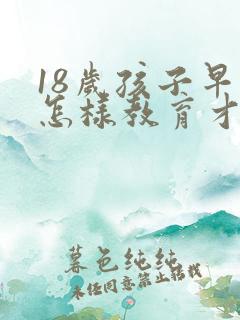 18岁孩子早
怎样教育才
暮色纯纯
未经同意禁止转载